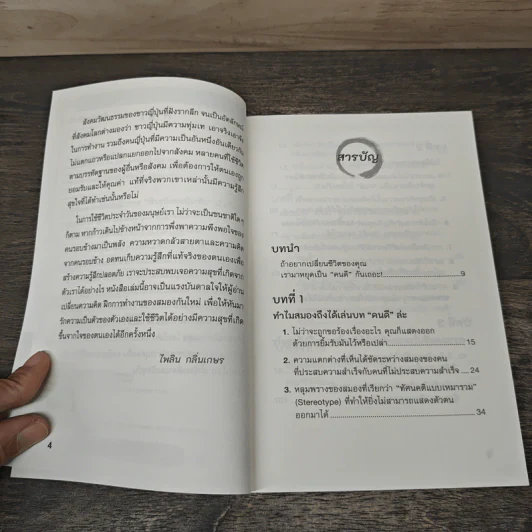 สังคมวัฒนธรรมของชาวญี่ปุ่นที่ฝังรากลึก จนเป็นอัตลักษณ์
ที่สังคมโลกต่างมองว่า ชาวญี่ปุ่นมีความทุ่มเท เอาจริงเอาจัง
ในการทำงาน รวมถึงคนญี่ปุ่นที่มีความเป็นอันหนึ่งอันเดียวกัน
ไม่แตกแถวหรือแปลกแยกออกไปจากสังคม หลายคนที่ใช้ชีวิต
ตามบรรทัดฐานของผู้อื่นหรือสังคม เพื่อต้องการให้ตนเองถูก
ยอมรับและให้คุณค่า แท้ที่จริงพวกเขาเหล่านั้นมีความรู้สึก
สุขใจที่ได้ทำเช่นนั้นหรือไม่
ในการใช้ชีวิตประจำวันของมนุษย์เรา ไม่ว่าจะเป็นชนชาติใด
ก็ตาม หากก้าวเดินไปข้างหน้าจากการพึ่งพาความพึงพอใจของ
คนรอบข้างมาเป็นพลัง ความหวาดกลัวสายตาและความคิด
จากคนรอบข้าง อดทนกับความรู้สึกที่แท้จริงของตนเองเพื่อ
สร้างความรู้สึกปลอดภัย เราจะประสบพบเจอความสุขที่เกิดจาก
ตัวเราได้อย่างไร หนังสือเล่มนี้อาจเป็นแรงบันดาลใจให้ผู้อ่าน
เปลี่ยนความคิด ฝึกการทำงานของสมองกันใหม่ เพื่อให้หันมา
รักความเป็นตัวของตัวเองและใช้ชีวิตได้อย่างมีความสุขที่เกิด
ขึ้นจากใจของตนเองได้อีกครั้งหนึ่ง
ไพลิน กลิ่นเกษร
4
สารบัญ
บทนำ
ถ้าอยากเปลี่ยนชีวิตของคุณ
เรามาหยุดเป็น “คนดี” กันเถอะ! 9
บทที่ 1
ทำไมสมองถึงได้เล่นบท “คนดี” ล่ะ
1. ไม่ว่าจะถูกขอร้องเรื่องอะไร คุณก็แสดงออก
ด้วยการยิ้มรับมันไว้หรือเปล่า 15
2. ความแตกต่างที่เห็นได้ชัดระหว่างสมองของคน
ที่ประสบความสำเร็จกับคนที่ไม่ประสบความสำเร็จ 24
3. หลุมพรางของสมองที่เรียกว่า “ทัศนคติแบบเหมารวม”
(Stereotype) ที่ทำให้ยิ่งไม่สามารถแสดงตัวตน
ออกมาได้ 34